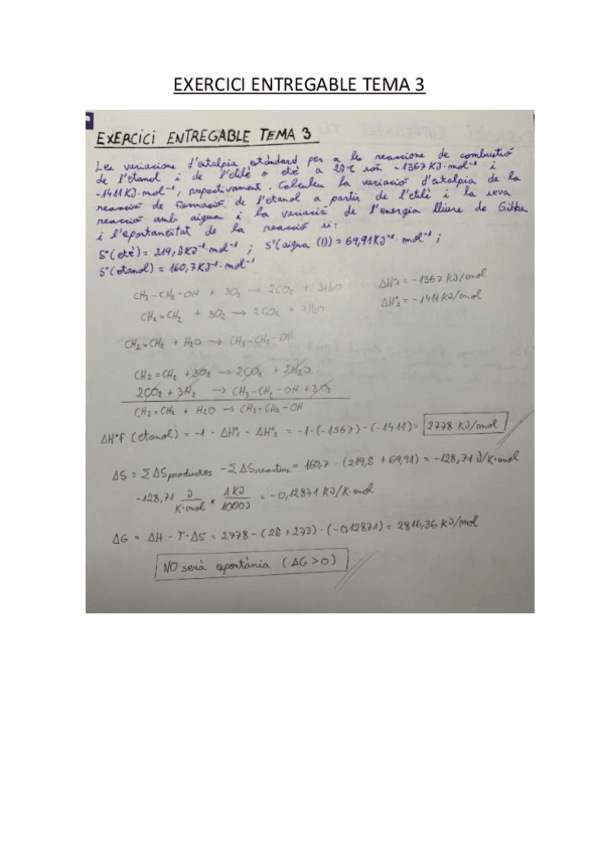 EXERCICI ENTREGABLE TEMA 3
EXERCICI ENTREGABLE TEMA 3
Les variacions d'entalpia estàndard per a les reaccions de combustió
de l'etanol i de l'etilè o etè a 28°C són -1367 KJ·mol⁻¹ i
-1411KJ·mol⁻¹, respectivament. Calculeu la variació d'entalpia de la
reacció de formació de l'etanol a partir de l'etilè i la seva
reacció amb aigua i la variació de l'energia lliure de Gibbs
i l'espontaneïtat de la reacció si:
S°(etè) = 219,8 K⁻¹·mol⁻¹ ; S°(aigua (l)) = 69,91 K⁻¹·mol⁻¹ ;
S°(etanol) = 160,7 K⁻¹·mol⁻¹
CH₃-CH₂-OH + 3O₂ → 2CO₂ + 3H₂O ΔH°₁ = -1367 KJ/mol
CH₂=CH₂ + 3O₂ → 2CO₂ + 2H₂O ΔH°₂ = -1411 KJ/mol
CH₂=CH₂ + H₂O → CH₃-CH₂-OH
CH₂=CH₂ + 3O₂ → 2CO₂ +
2CO₂ + → CH₃-CH₂-OH + 3O₂
CH₂=CH₂ + H₂O → CH₃-CH₂-OH
ΔH°f (etanol) = -1 · ΔH°₁ - ΔH°₂ = -1·(-1367)-(-1411) = 2778 KJ/mol
ΔS = ΣΔSproductes - ΣΔSreactius = 160,7 - (219,8 + 69,91) = -128,71 J/K·mol
-128,71 J/K·mol × 1KJ/1000J = -0,12871 KJ/K·mol
ΔG = ΔH - T·ΔS = 2778 - (28+273)·(-0,12871) = 2816,36 KJ/mol
NO serà espontània (ΔG>0)